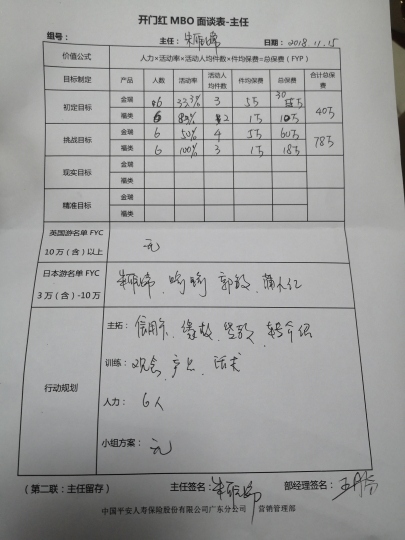 开门红 MBO 面谈表-主任
组号： 主任： 日期：2018.11.15
价值公式 人力×活动率×活动人均件数×件均保费=总保费（FYP）
目标制定 产品 人数 活动率 活动人均件数 件均保费 总保费 合计总保费
初定目标 金瑞 6 33.3% 3 5万 30万 40万
福类 6 2 1万 10万
挑战目标 金瑞 6 50% 4 5万 60万 78万
福类 6 100% 3 1万 18万
现实目标 金瑞
福类
精准目标 金瑞
福类
英国游名单 FYC 10 万（含）以上 无
日本游名单 FYC 3 万（含）-10万
行动规划
主拓：信用卡、缘故、转介绍
训练：观念、产品、话术
人力：6人
小组方案：无
（第二联：主任留存） 主任签名： 部经理签名：
中国平安人寿保险股份有限公司广东分公司 营销管理部